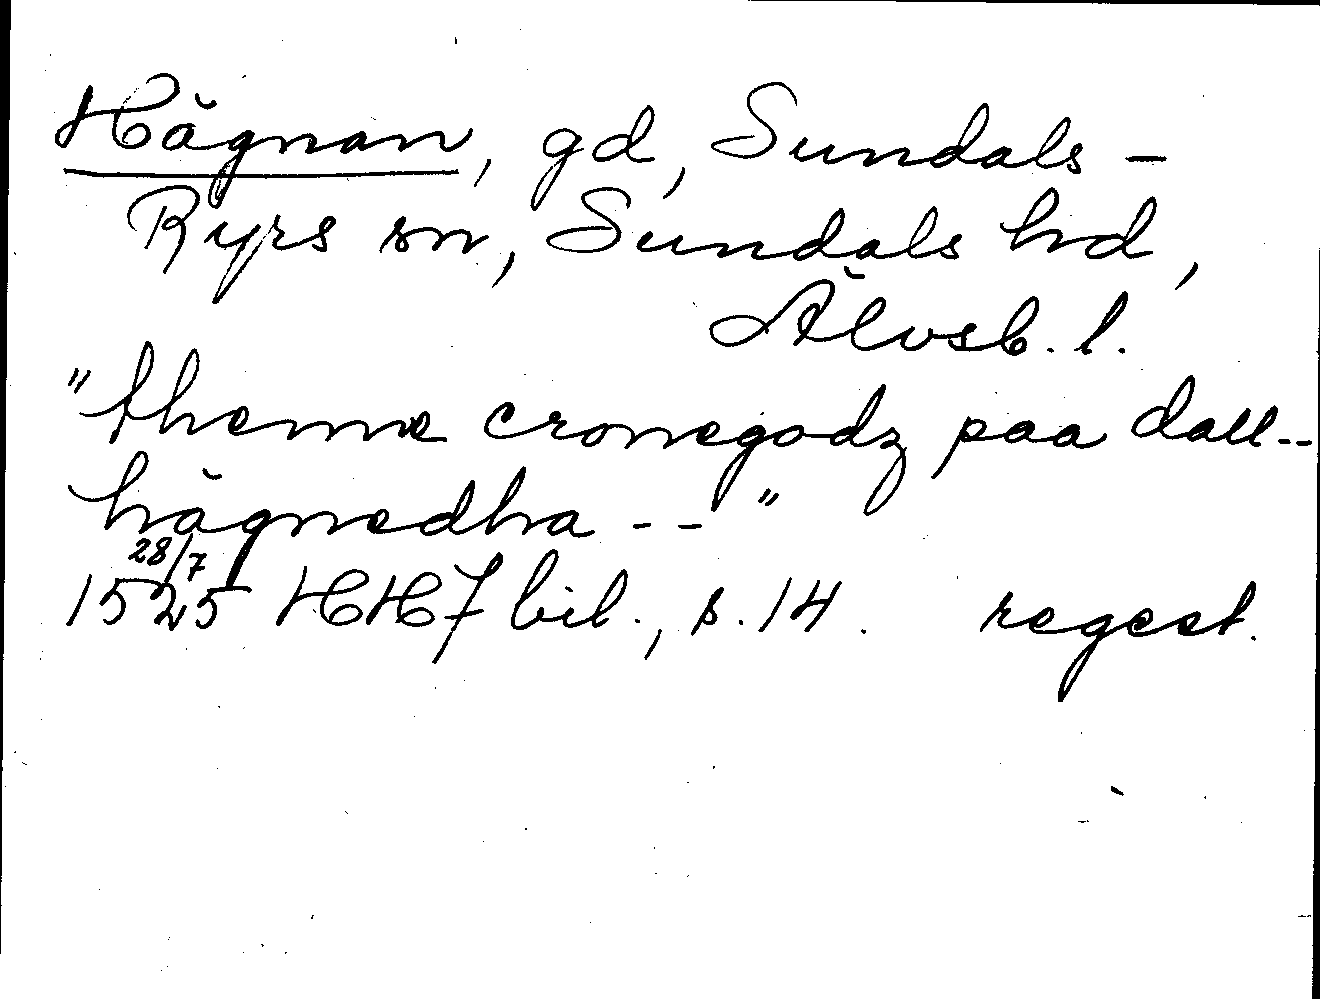 Hägnan, gd, Sundals-
Ryrs sn, Sundals hd,
Älvsb. l.
"thenne cronegodz paa dall--
hägnedha --"
28/7
1525 HH7 bil., s. 14. regest.